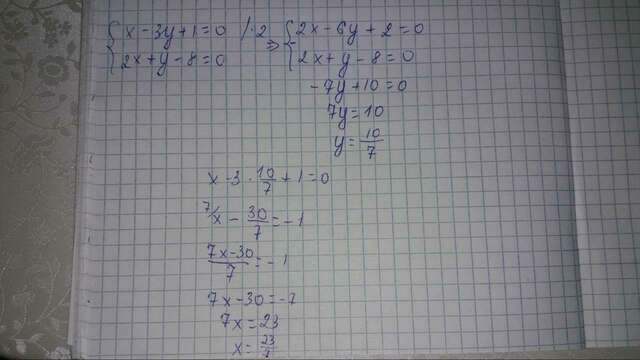 {x - 3y + 1 = 0 /·2 ⇒ {2x - 6y + 2 = 0
{2x + y - 8 = 0 {2x + y - 8 = 0
- 7y + 10 = 0
7y = 10
y = 10/7
x - 3 · 10/7 + 1 = 0
7/x - 30/7 = -1
7x - 30/7 = -1
7x - 30 = -7
7x = 23
x = 23/7